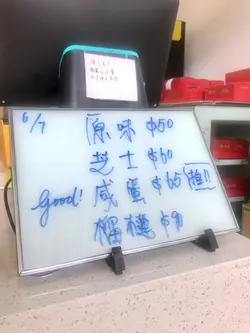 6/7
原味 $50
芝士 $60
Good! 咸蛋 $65 推!!
榴槤 $90